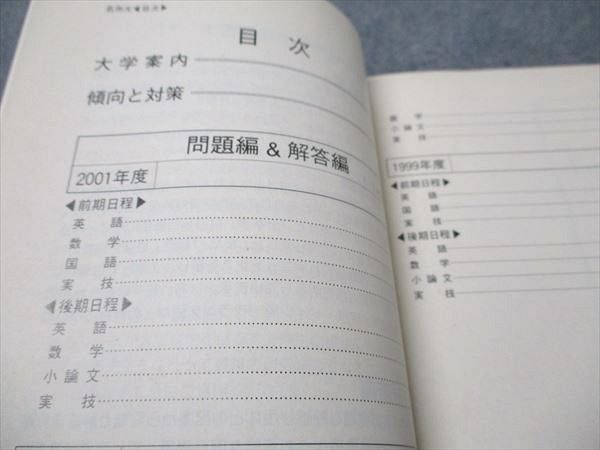 目次
大学案内
傾向と対策
問題編&解答編
2001年度
◀前期日程▶
英語
数学
国語
実技
◀後期日程▶
英語
数学
小論文
実技
数学
小論文
実技
1999年度
◀前期日程▶
英語
国語
実技
◀後期日程▶
英語
数学
小論文
実技